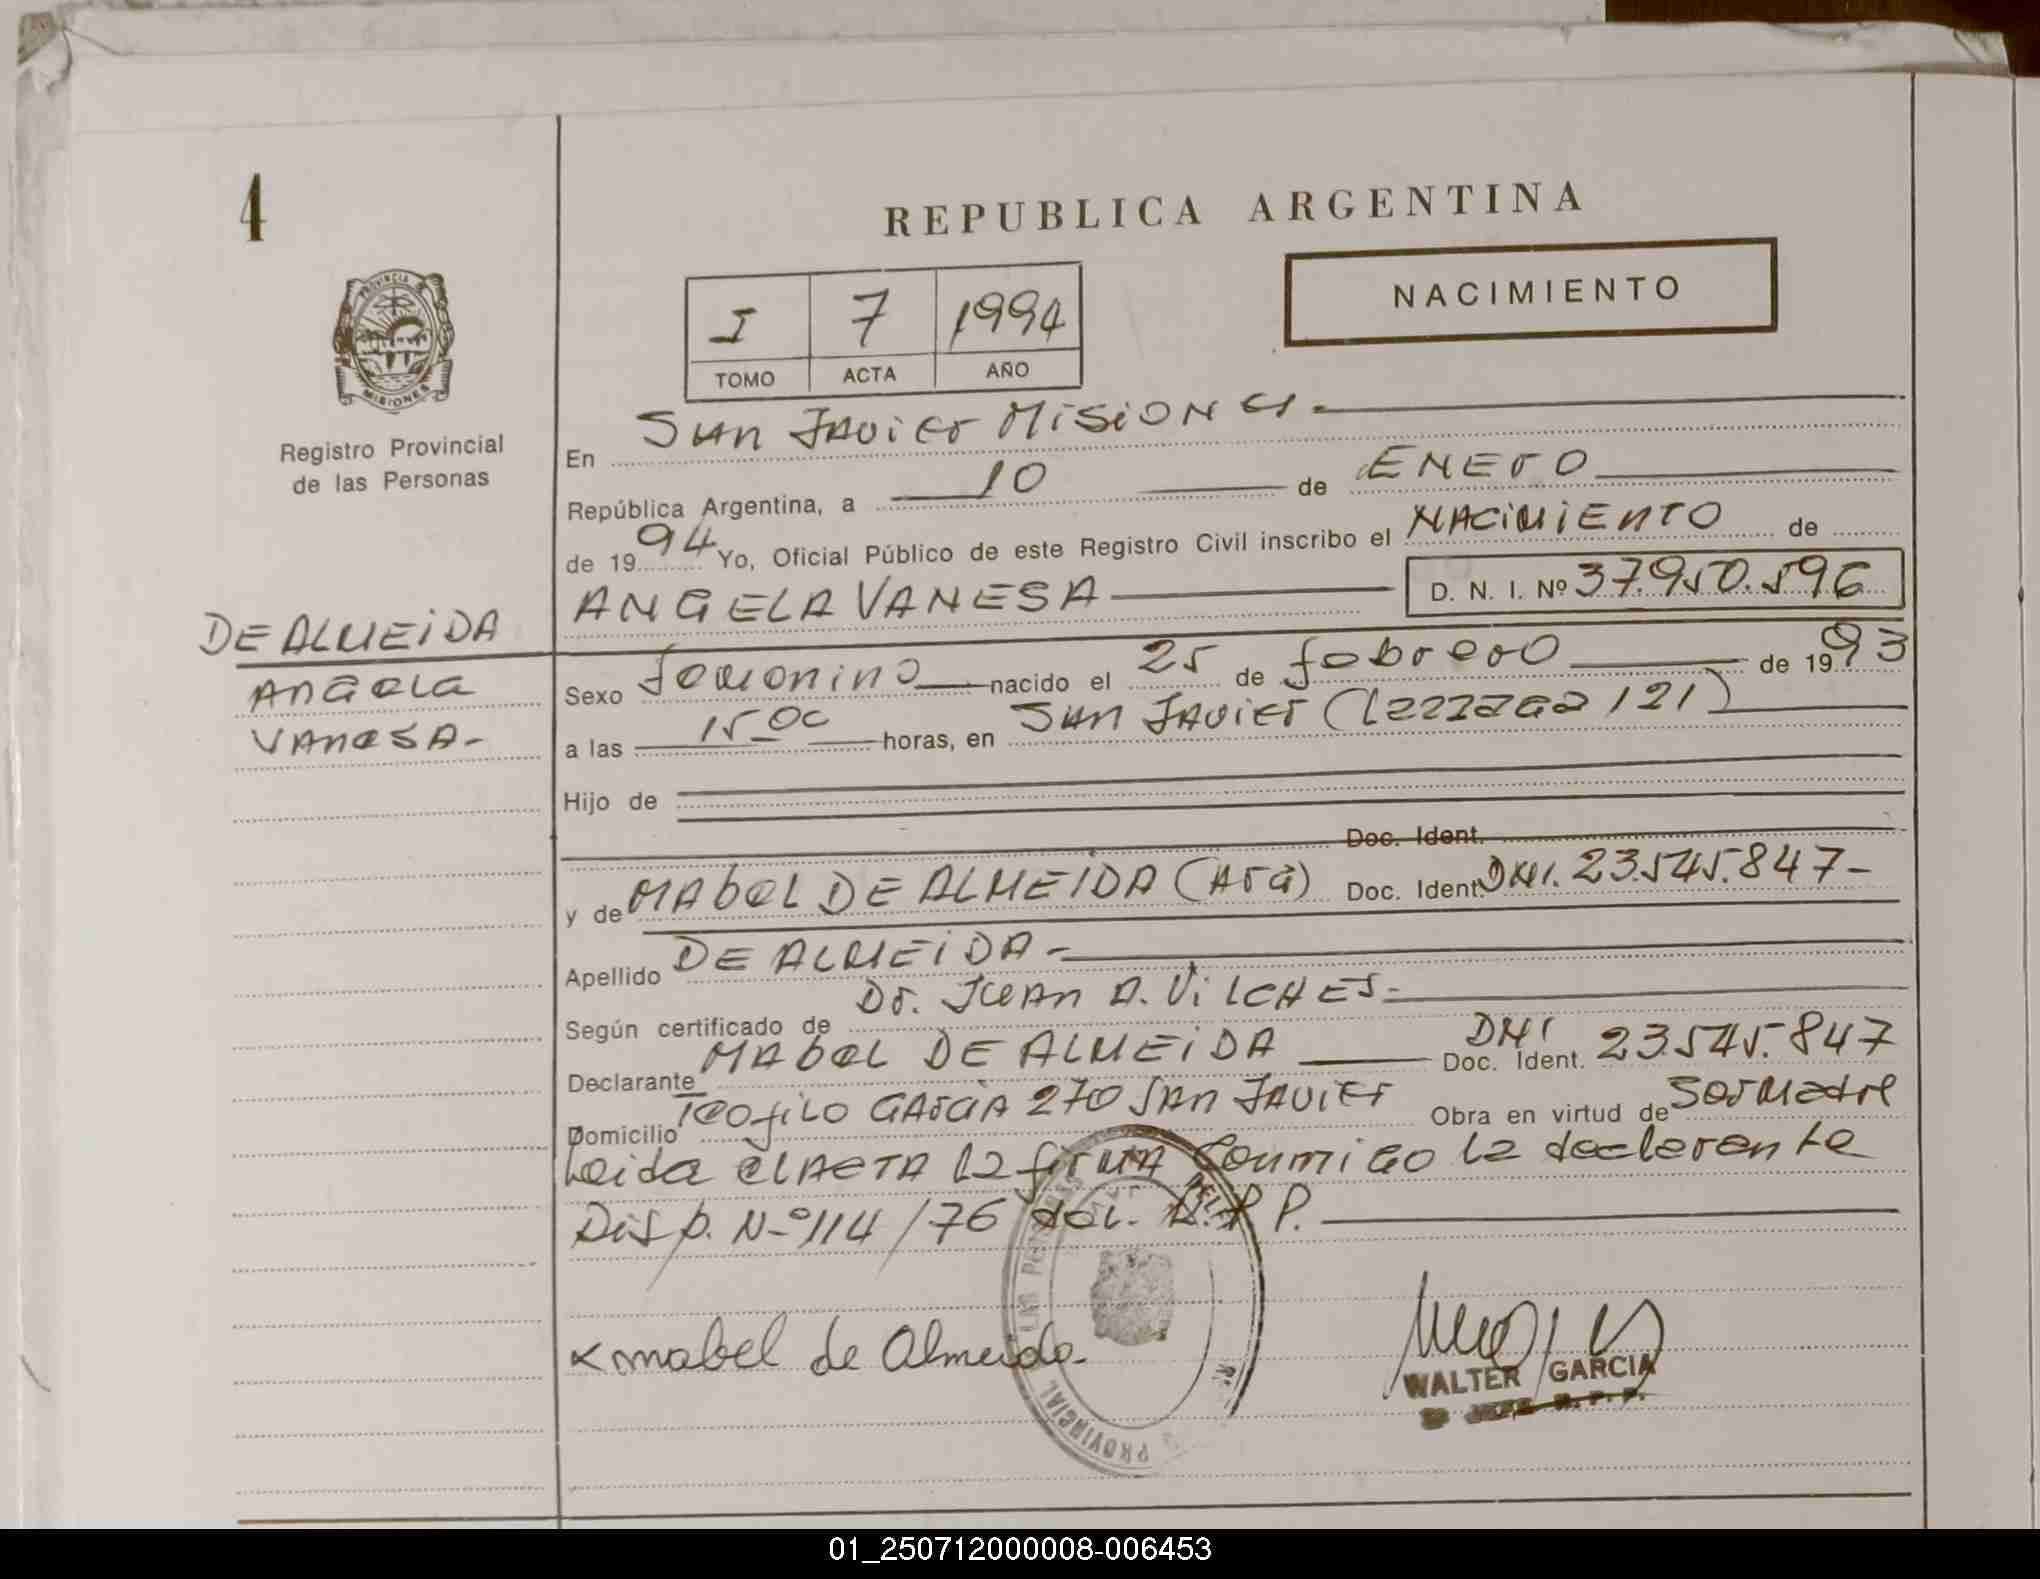 4
REPUBLICA ARGENTINA
NACIMIENTO
I 7 1994
TOMO ACTA AÑO
PROVINCIA DE
MISIONES
Registro Provincial
de las Personas
En San Javier Misiones.-
República Argentina, a 10 de ENERO
de 1994 Yo, Oficial Público de este Registro Civil inscribo el NACIMIENTO de
ANGELA VANESA D. N. I. Nº 37.950.596
DE ALMEIDA
Angela
Vanesa-
Sexo femenino nacido el 25 de febrero de 1993
a las 15 00 horas, en San Javier ( 121)
Hijo de
Doc. Ident.
y de Mabel DE ALMEIDA (Arg) Doc. Ident. DNI. 23.545.847-
Apellido DE ALMEIDA-
Según certificado de Dr. Juan A. Vilches-
Declarante Mabel DE ALMEIDA Doc. Ident. DNI 23.545.847
Domicilio Teofilo Garcia 270 San Javier Obra en virtud de Ser Madre
Leida el Acta la firma Conmigo la declarante
Disp. N-º114/76 del. R.P P.
x mabel de Almeida-
WALTER GARCIA
PROVINCIAL